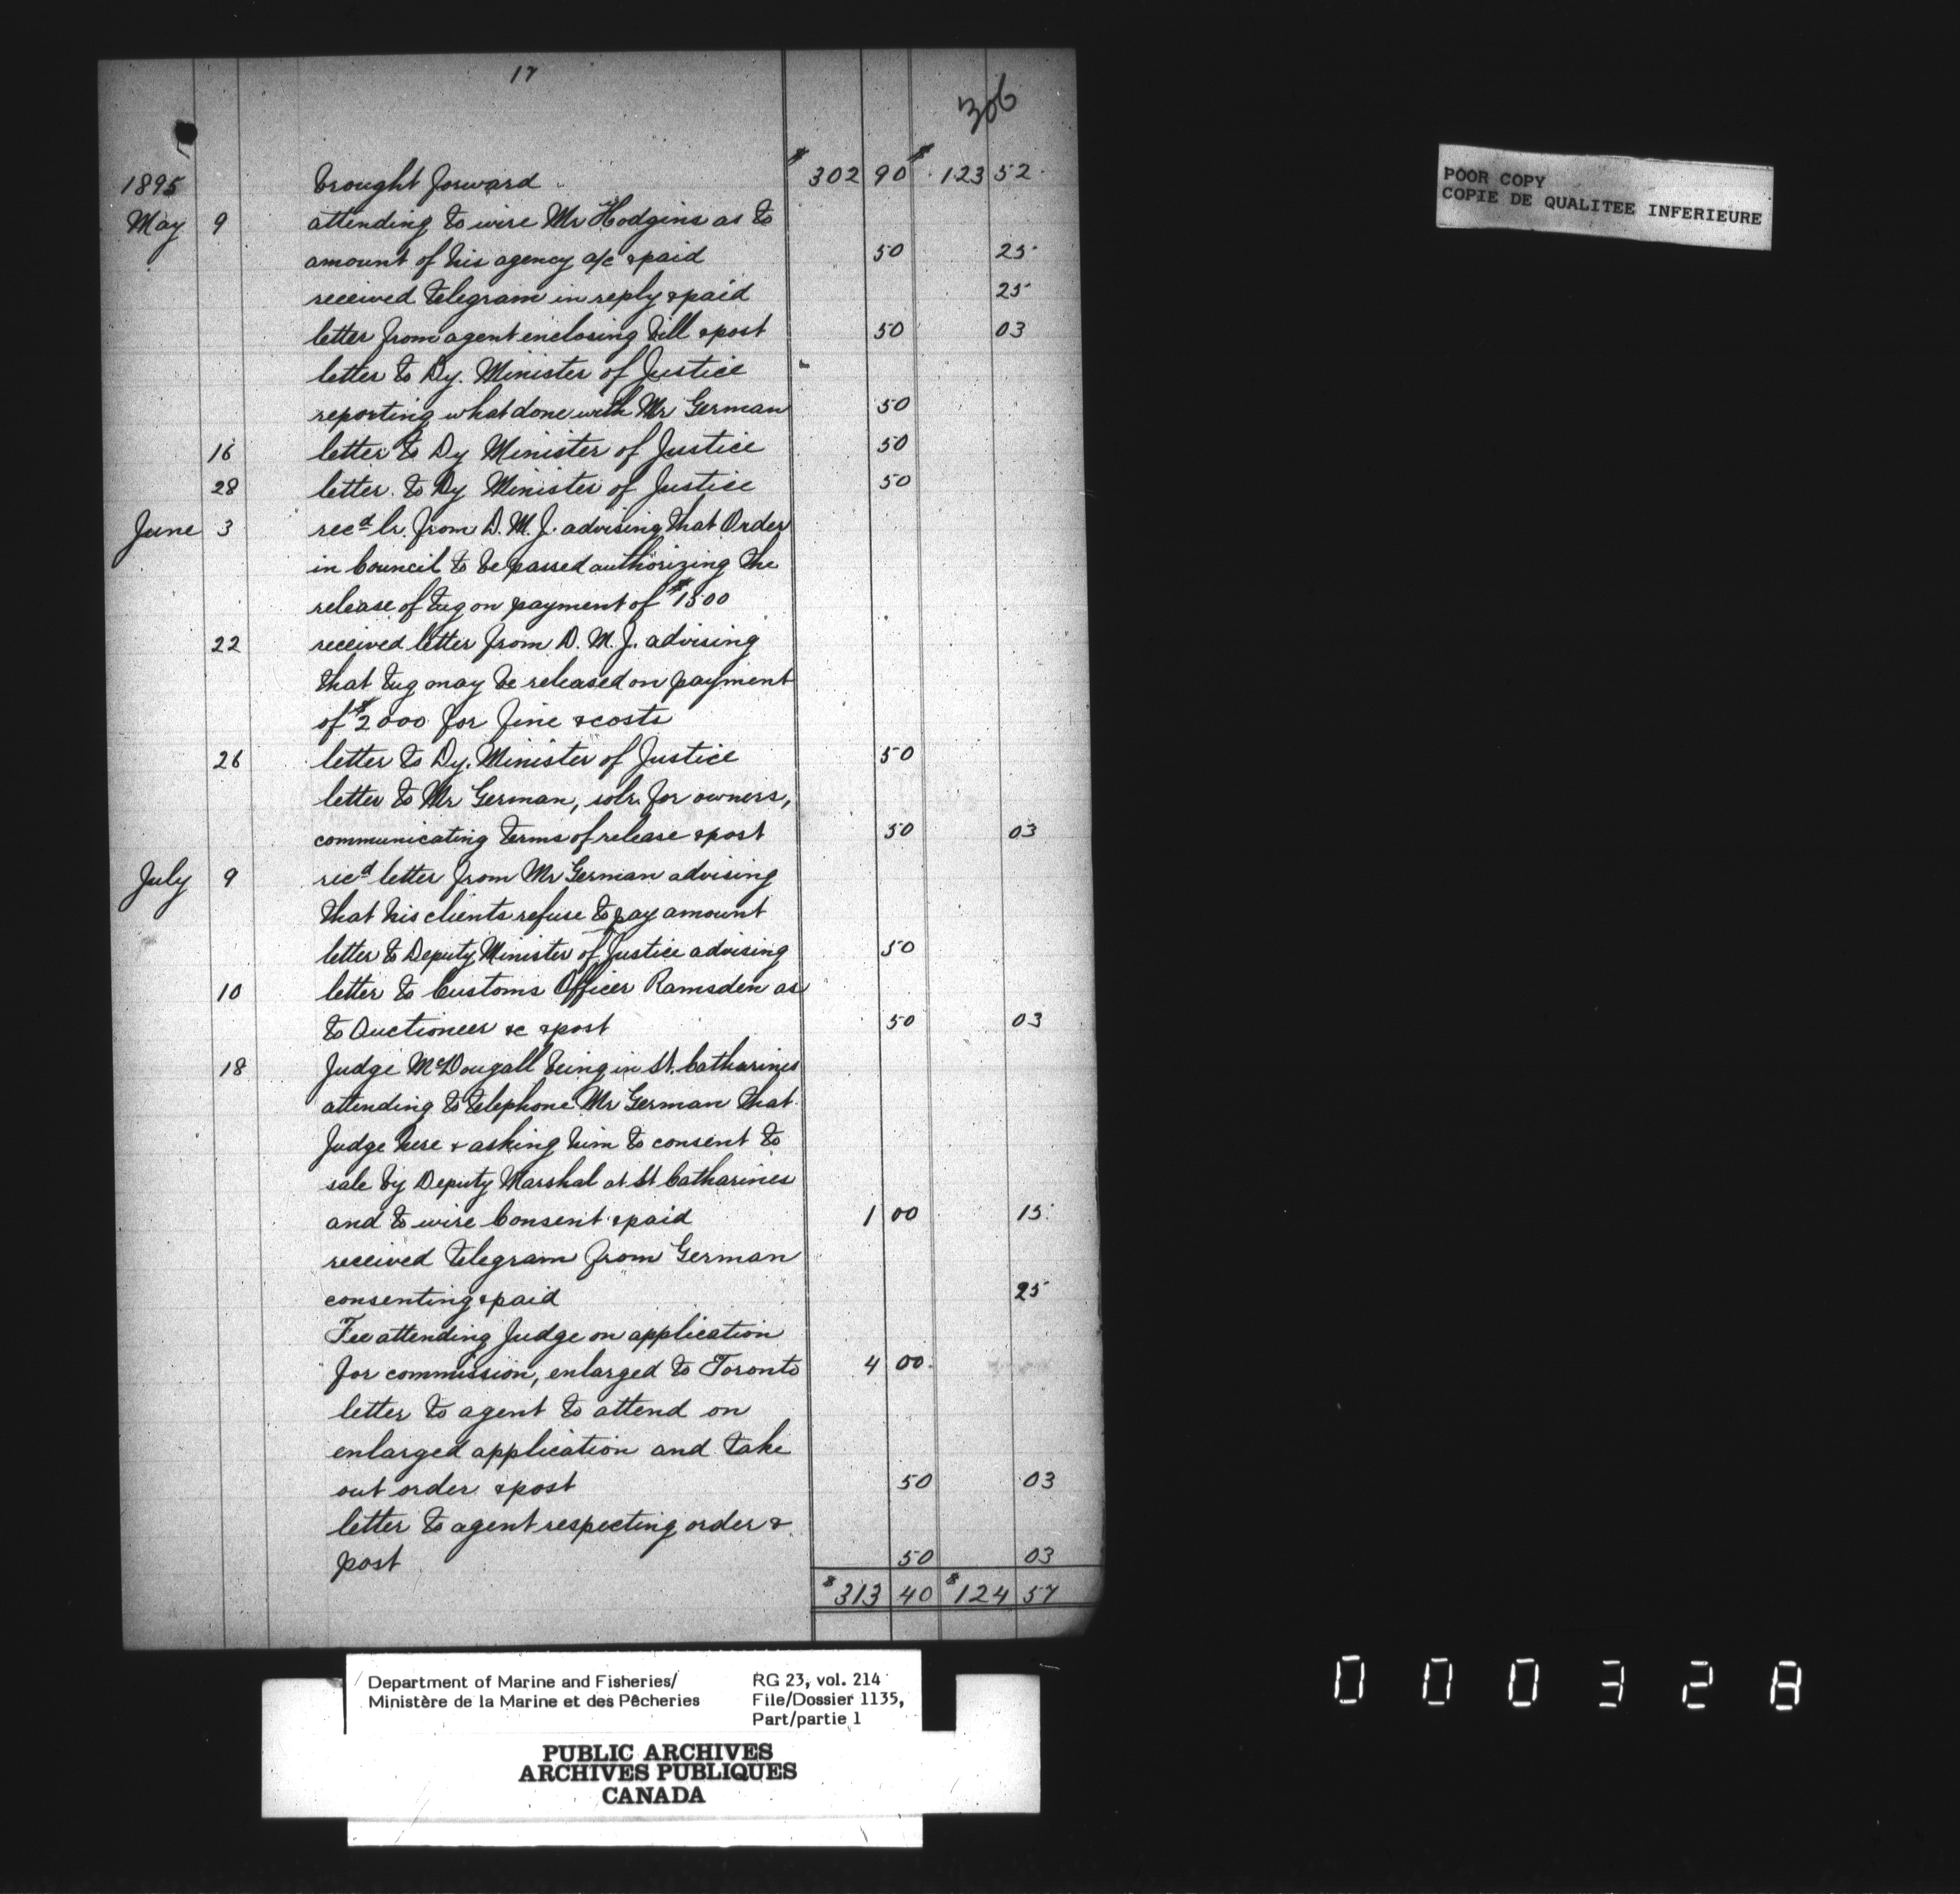 17
306
1895 brought forward $302 90 $123 52
May 9 attending to wire Mr Hodgins as to
amount of his agency a/c & paid 50 25
received telegram in reply & paid 25
letter from agent enclosing bill & post 50 03
letter to Dy. Minister of Justice
reporting what done with Mr German 50
16 letter to Dy Minister of Justice 50
28 letter to Dy Minister of Justice 50
June 3 recd lr. from D.M.J. advising that Order
in Council to be passed authorizing the
release of tug on payment of $1500
22 received letter from D.M.J. advising
that tug may be released on payment
of $2000 for fine & costs
26 letter to Dy. Minister of Justice 50
letter to Mr German, solr. for owners,
communicating terms of release & post 50 03
July 9 recd letter from Mr German advising
that his clients refuse to pay amount
letter to Deputy Minister of Justice advising 50
10 letter to Customs Officer Ramsden as
to Auctioneer &c & post 50 03
18 Judge McDougall being in St. Catharines
attending to telephone Mr German that
Judge here & asking him to consent to
sale by Deputy Marshal at St Catharines
and to wire Consent & paid 1 00 15
received telegram from German
consenting & paid 25
Fee attending Judge on application
for commission, enlarged to Toronto 4 00
letter to agent to attend on
enlarged application and take
out order & post 50 03
letter to agent respecting order &
post 50 03
$313 40 $124 57
POOR COPY
COPIE DE QUALITEE INFERIEURE
Department of Marine and Fisheries/
Ministère de la Marine et des Pêcheries
RG 23, vol. 214
File/Dossier 1135,
Part/partie 1
PUBLIC ARCHIVES
ARCHIVES PUBLIQUES
CANADA
000328